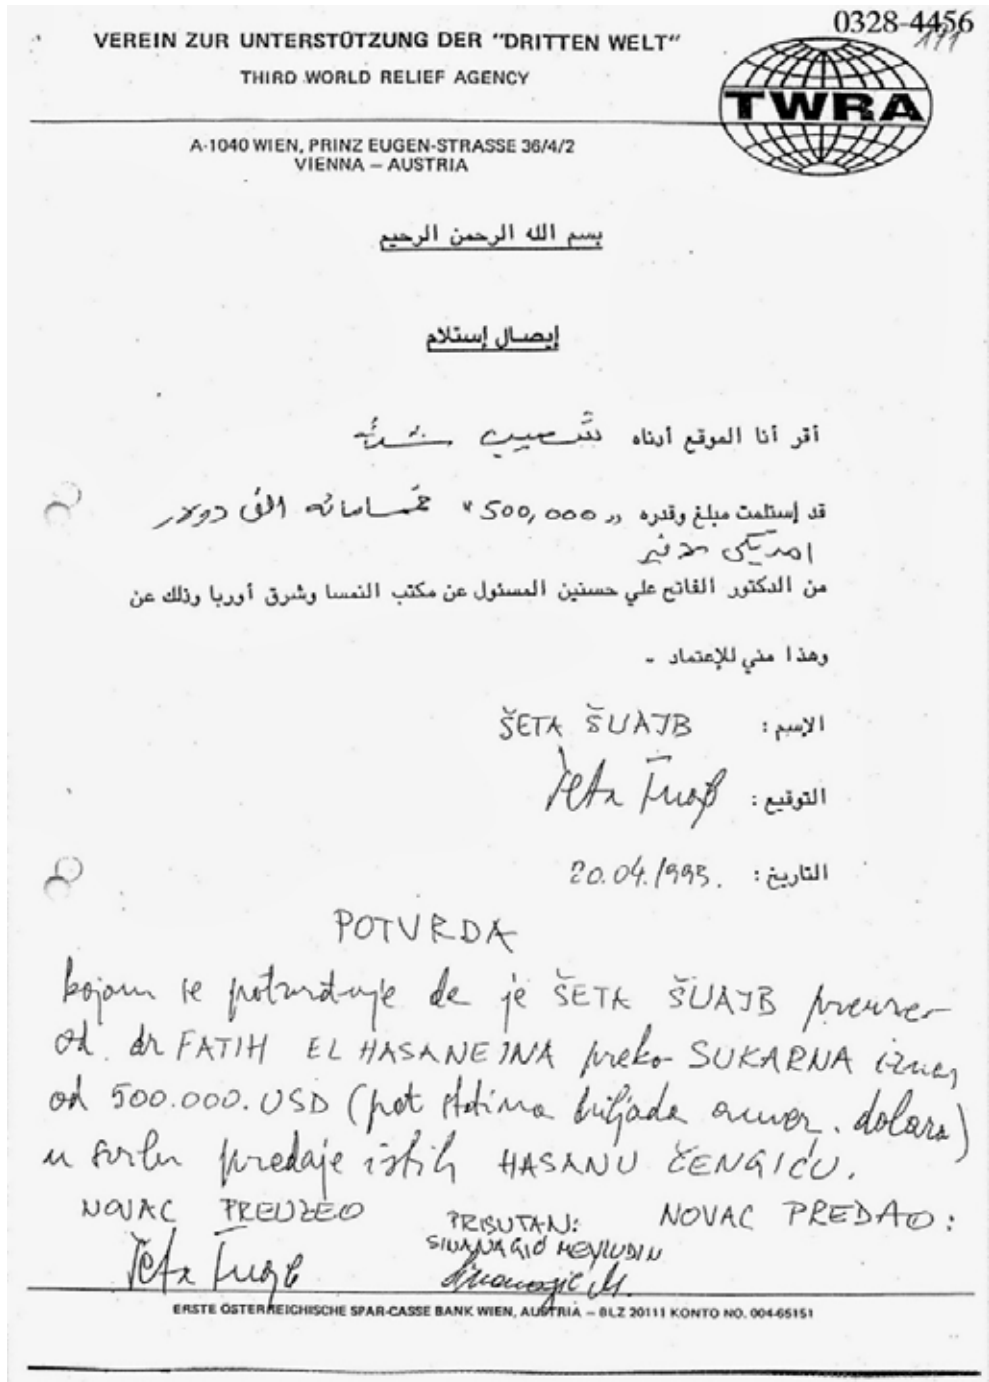 0328-4456
VEREIN ZUR UNTERSTÜTZUNG DER "DRITTEN WELT"
THIRD WORLD RELIEF AGENCY
TWRA
A-1040 WIEN, PRINZ EUGEN-STRASSE 36/4/2
VIENNA – AUSTRIA
بسم الله الرحمن الرحيم
إيصال إستلام
أقر أنا الموقع أدناه
قد إستلمت مبلغ وقدره „ 500,000 " خمسمائه الف دولار
امريكي لا غير
من الدكتور الفاتح علي حسنين المسئول عن مكتب النمسا وشرق أوربا وذلك عن
وهذا مني للإعتماد -
الإسم : ŠETA ŠUAJB
التوقيع : Šeta Šuajb
التاريخ : 20.04.1995.
POTVRDA
kojom se potvrđuje da je ŠETA ŠUAJB preuzeo
od dr FATIH EL HASANEINA preko SUKARNA iznos
od 500.000.USD (pet stotina hiljada amer. dolara)
u svrhu predaje istih HASANU ČENGIĆU.
NOVAC PREUZEO PRISUTAN: NOVAC PREDAO:
SINANAGIĆ MEVLUDIN
Šeta Šuajb Sinanagić M.
ERSTE ÖSTERREICHISCHE SPAR-CASSE BANK WIEN, AUSTRIA – BLZ 20111 KONTO NO. 004-65151